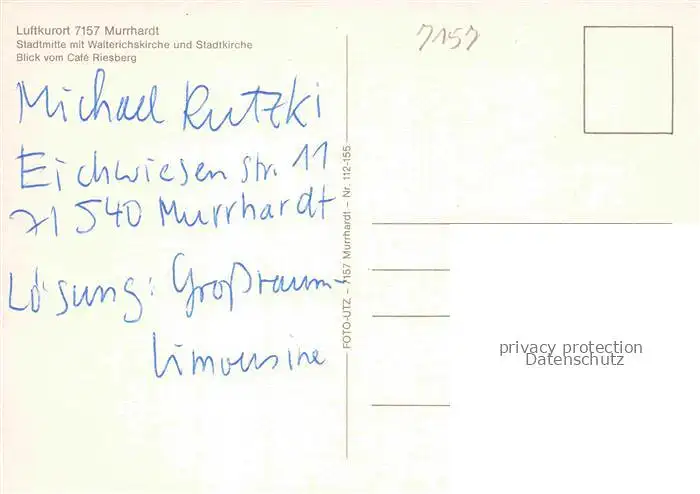 Luftkurort 7157 Murrhardt
Stadtmitte mit Walterichskirche und Stadtkirche
Blick vom Café Riesberg
7157
Michael Rutzki
Eichwiesenstr. 11
71540 Murrhardt
Lösung: Großraum-
limousine
FOTO-UTZ – 7157 Murrhardt – Nr. 112-155
privacy protection
Datenschutz